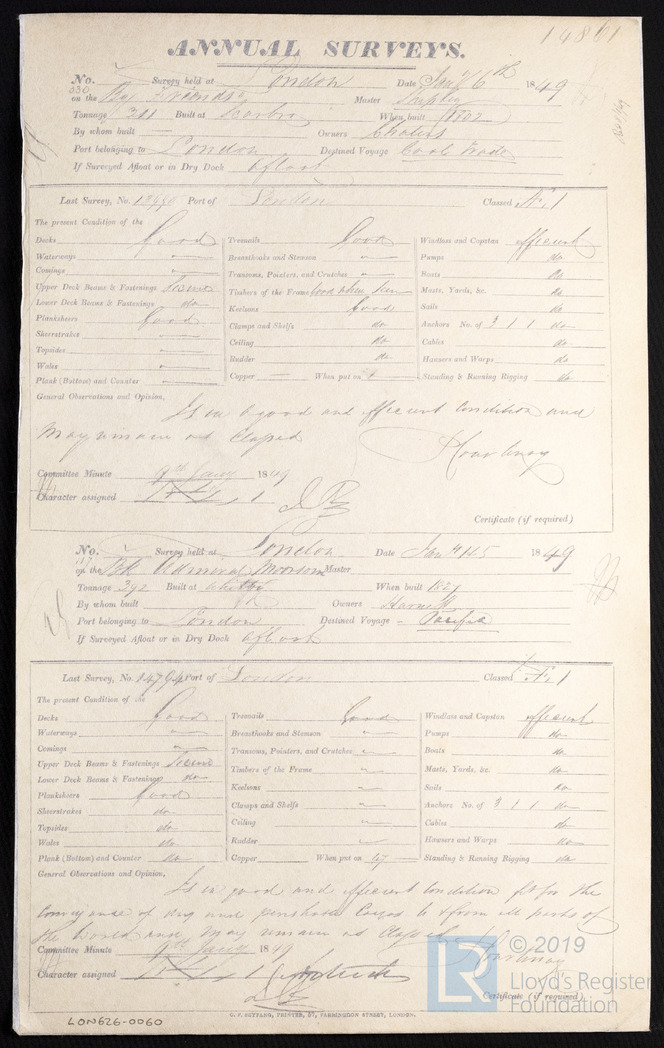 14861
ANNUAL SURVEYS.
No. Survey held at London Date Jany 6th 1849
on the Bg Friends Master Shipley
Tonnage 301 Built at Scarbro When built 1802
By whom built — Owners Chalers
Port belonging to London Destined Voyage Coal Trade
If Surveyed Afloat or in Dry Dock afloat
Last Survey, No. Port of London Classed Æ 1
The present Condition of the
Decks Good
Waterways
Comings
Upper Deck Beams & Fastenings Secure
Lower Deck Beams & Fastenings do
Planksheers Good
Sheerstrakes
Topsides
Wales
Plank (Bottom) and Counter
Treenails Good
Breasthooks and Stemson
Transoms, Pointers, and Crutches
Timbers of the Frame Good when seen
Keelsons Good
Clamps and Shelfs do
Ceiling do
Rudder do
Copper — When put on
Windlass and Capstan efficient
Pumps do
Boats do
Masts, Yards, &c. do
Sails do
Anchors No. of 3 1 1 do
Cables do
Hawsers and Warps do
Standing & Running Rigging do
General Observations and Opinion,
Is in a good and efficient condition and
May remain as Classed
Courtenay
Committee Minute 9th Jany 1849
Character assigned Æ 1
Certificate (if required)
No. Survey held at London Date Jan 4 & 5 1849
on the Bk Admiral Moorsom Master
Tonnage 392 Built at Whitby When built 1827
By whom built Owners
Port belonging to London Destined Voyage - Pacific
If Surveyed Afloat or in Dry Dock afloat
Last Survey, No. 14794 Port of London Classed Æ 1
The present Condition of the
Decks Good
Waterways
Comings
Upper Deck Beams & Fastenings Secure
Lower Deck Beams & Fastenings do
Planksheers Good
Sheerstrakes do
Topsides do
Wales do
Plank (Bottom) and Counter do
Treenails Good
Breasthooks and Stemson
Transoms, Pointers, and Crutches
Timbers of the Frame
Keelsons
Clamps and Shelfs
Ceiling
Rudder
Copper When put on 47
Windlass and Capstan efficient
Pumps do
Boats do
Masts, Yards, &c. do
Sails do
Anchors No. of 3 1 1 do
Cables do
Hawsers and Warps do
Standing & Running Rigging do
General Observations and Opinion,
Is in good and efficient condition fit for the
Conveyance of dry and perishable Cargo to & from all parts of
the World and May remain as Classed
Courtenay
Committee Minute 9th Jany 1849
Character assigned Æ 1
Certificate (if required),
G. F. SOTRANO, PRINTER, 37, FARRINGDON STREET, LONDON.
LON626-0060
LR © 2019
Lloyd's Register
Foundation